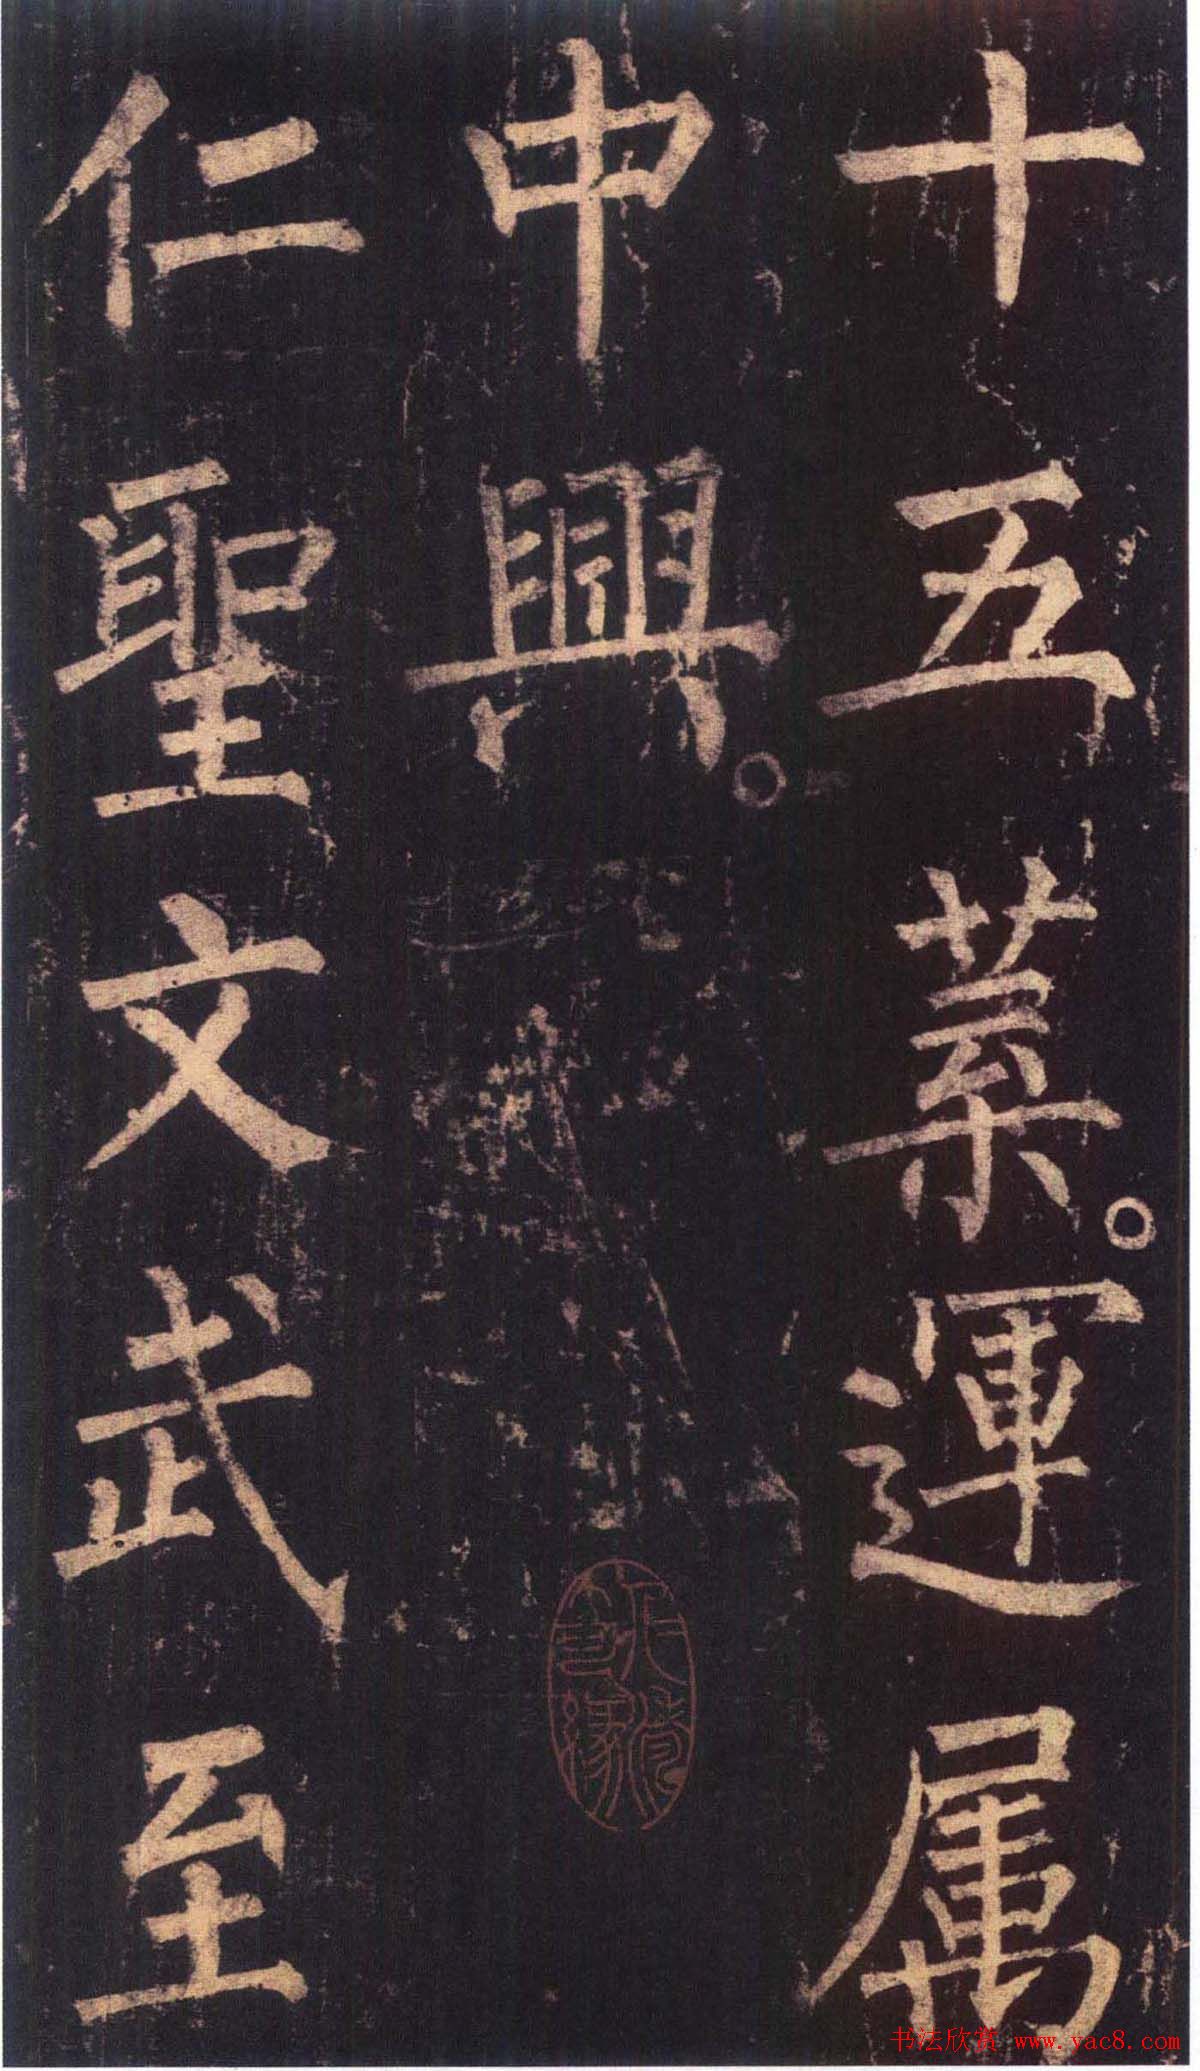 十五葉。運属
中興。
仁聖文武至
书法欣赏 www.yac8.com